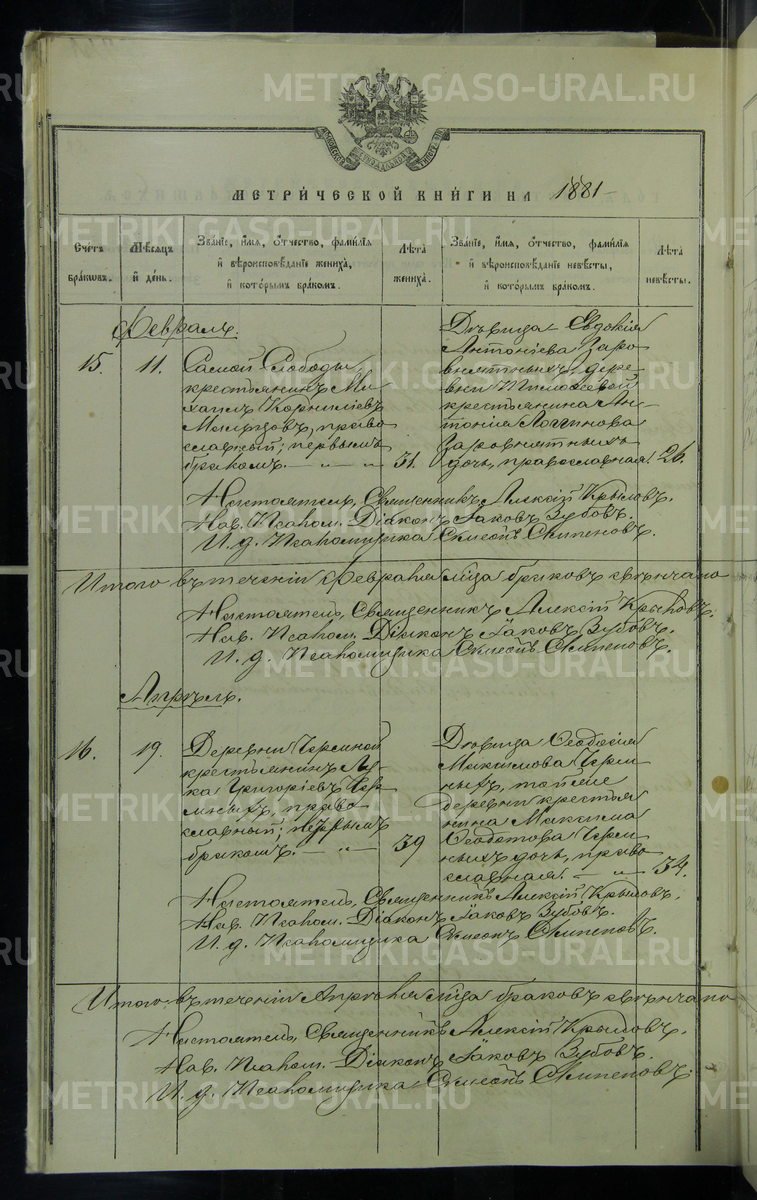 МЕТРИ́ЧЕСКОЙ КНИ́ГИ НА 1881
Сче́тъ бра́ковъ.
Мѣ́сяцъ и де́нь.
Зва́нїе, и́мя, о́тчество, фами́лїя и вѣроисповѣ́данїе жениха́, и кото́рымъ бра́комъ.
Лѣ́та жениха́.
Зва́нїе, и́мя, о́тчество, фами́лїя и вѣроисповѣ́данїе невѣ́сты, и кото́рымъ бра́комъ.
Лѣ́та невѣ́сты.
Февраль.
15.
11.
Самой Слободы
крестьянинъ Ми-
хаилъ Корнилiевъ
право
славный; первымъ
бракомъ.
31.
Дѣвица Евдокiя
Антонiева Заро
внятныхъ, дере-
вни
крестьянина Ан-
тонiя Логгинова
Заровнятныхъ
дочь, православная.
26.
Настоятель, Священникъ Алексiй Крыловъ.
Нав. Псалом. Дiаконъ Iаковъ Зубовъ.
И. д. Псаломщика Симеонъ
Итого въ теченiи Февраля м̃ца браковъ свѣнчано
Настоятель, Священникъ Алексiй Крыловъ.
Нав. Псалом. Дiаконъ Iаковъ Зубовъ.
И. д. Псаломщика Симеонъ
Апрѣль.
16.
19.
Деревни Черемной
крестьянинъ Лу-
ка Григорiевъ Чер
мныхъ, право
славный; первымъ
бракомъ.
39
Дѣвица Ѳеодосiя
Максимова Черм-
ныхъ, той же
деревни крестья
нина Максима
Ѳеодотова Черм-
ныхъ дочь, право
славная.
34.
Настоятель, Священникъ Алексiй Крыловъ.
Нав. Псалом. Дiаконъ Iаковъ Зубовъ.
И. д. Псаломщика Симеонъ
Итого въ теченiи Апрѣля м̃ца браковъ свѣнчано
Настоятель, Священникъ Алексiй Крыловъ.
Нав. Псалом. Дiаконъ Iаковъ Зубовъ.
И. д. Псаломщика Симеонъ
METRIKI.GASO-URAL.RU